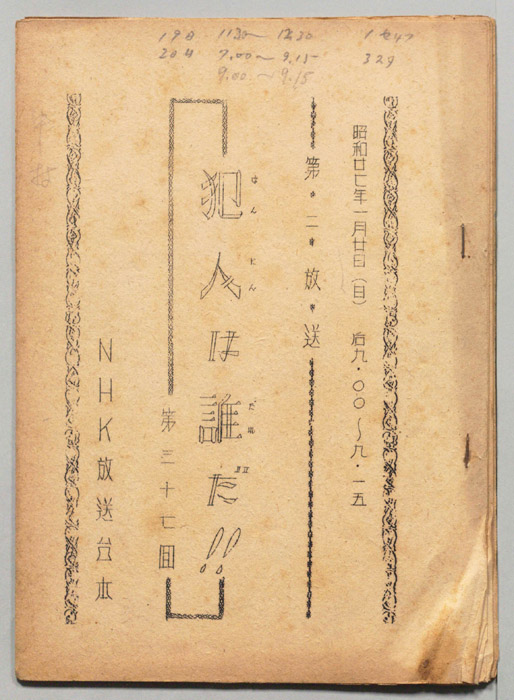 19日 11.30〜12.30 1セ47
20日 7.00〜9.15 329
9.00〜9.15
昭和廿七年一月廿日(日) 后九・〇〇〜九・一五
第二放送
犯人は誰だ!!
はんにん だれ
第三十七回
NHK放送台本